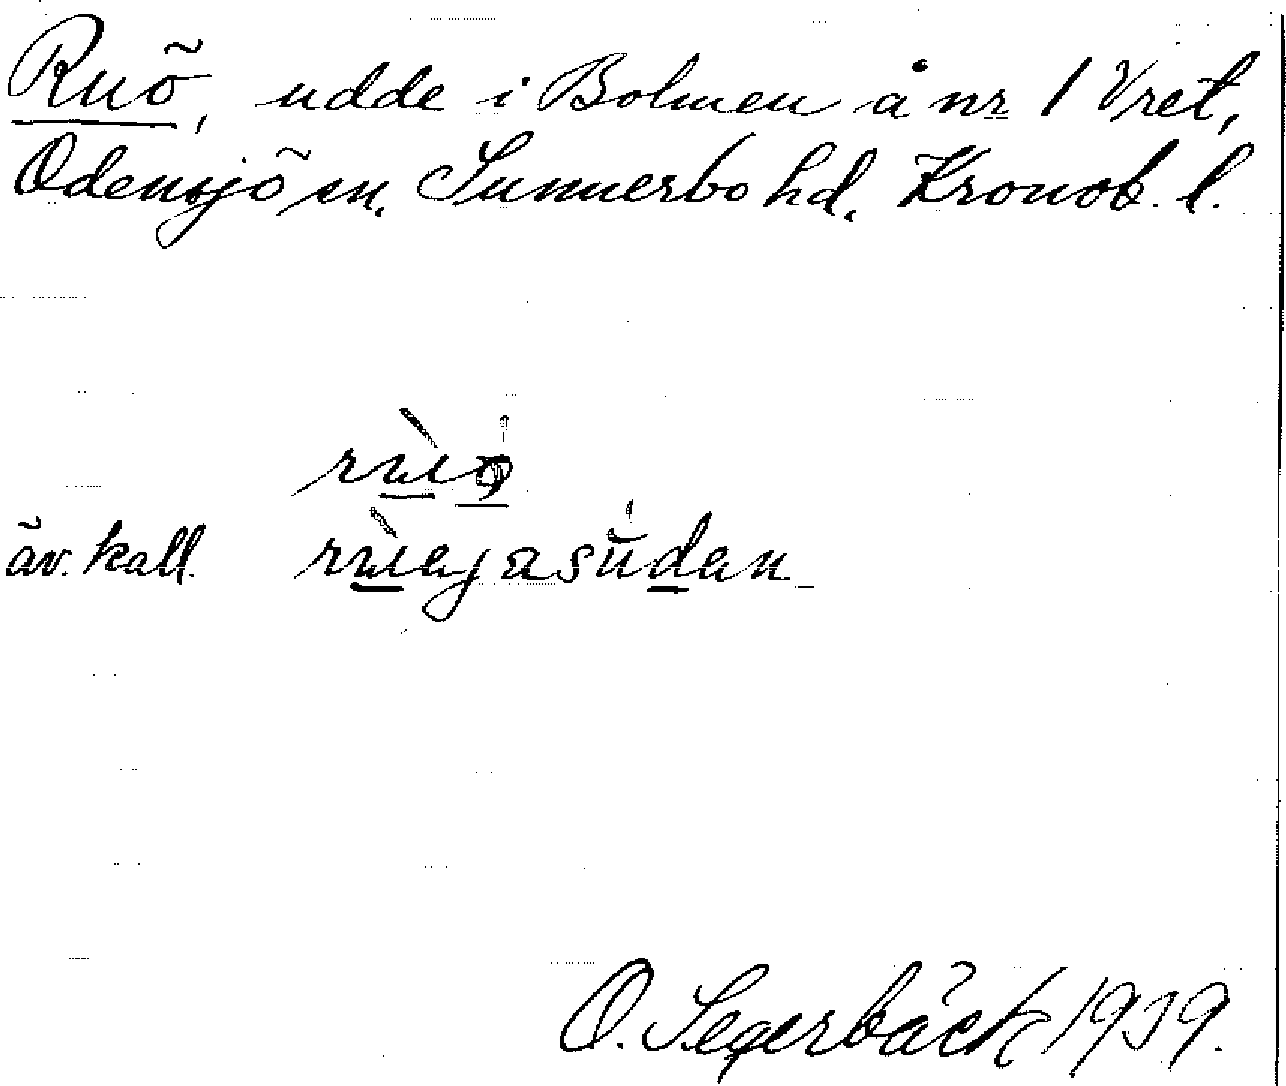 Ruö, udde i Bolmen å nr 1 Vret,
Odensjö sn. Sunnerbo hd. Kronob. l.
äv. kall.
O. Segerbäck 1939.